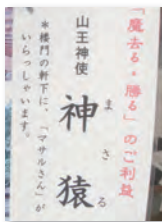 「魔去る・勝る」のご利益
山王神使
神猿
まさる
＊楼門の軒下に、「マサルさん」が
いらっしゃいます。